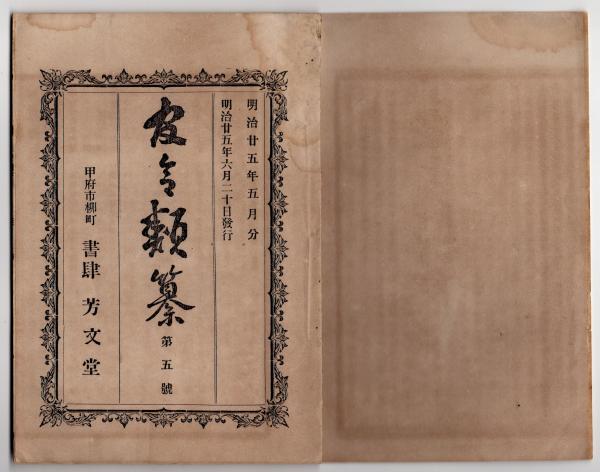 明治廿五年五月分
明治廿五年六月二十日發行
令類纂
第五號
甲府市柳町 書肆 芳文堂